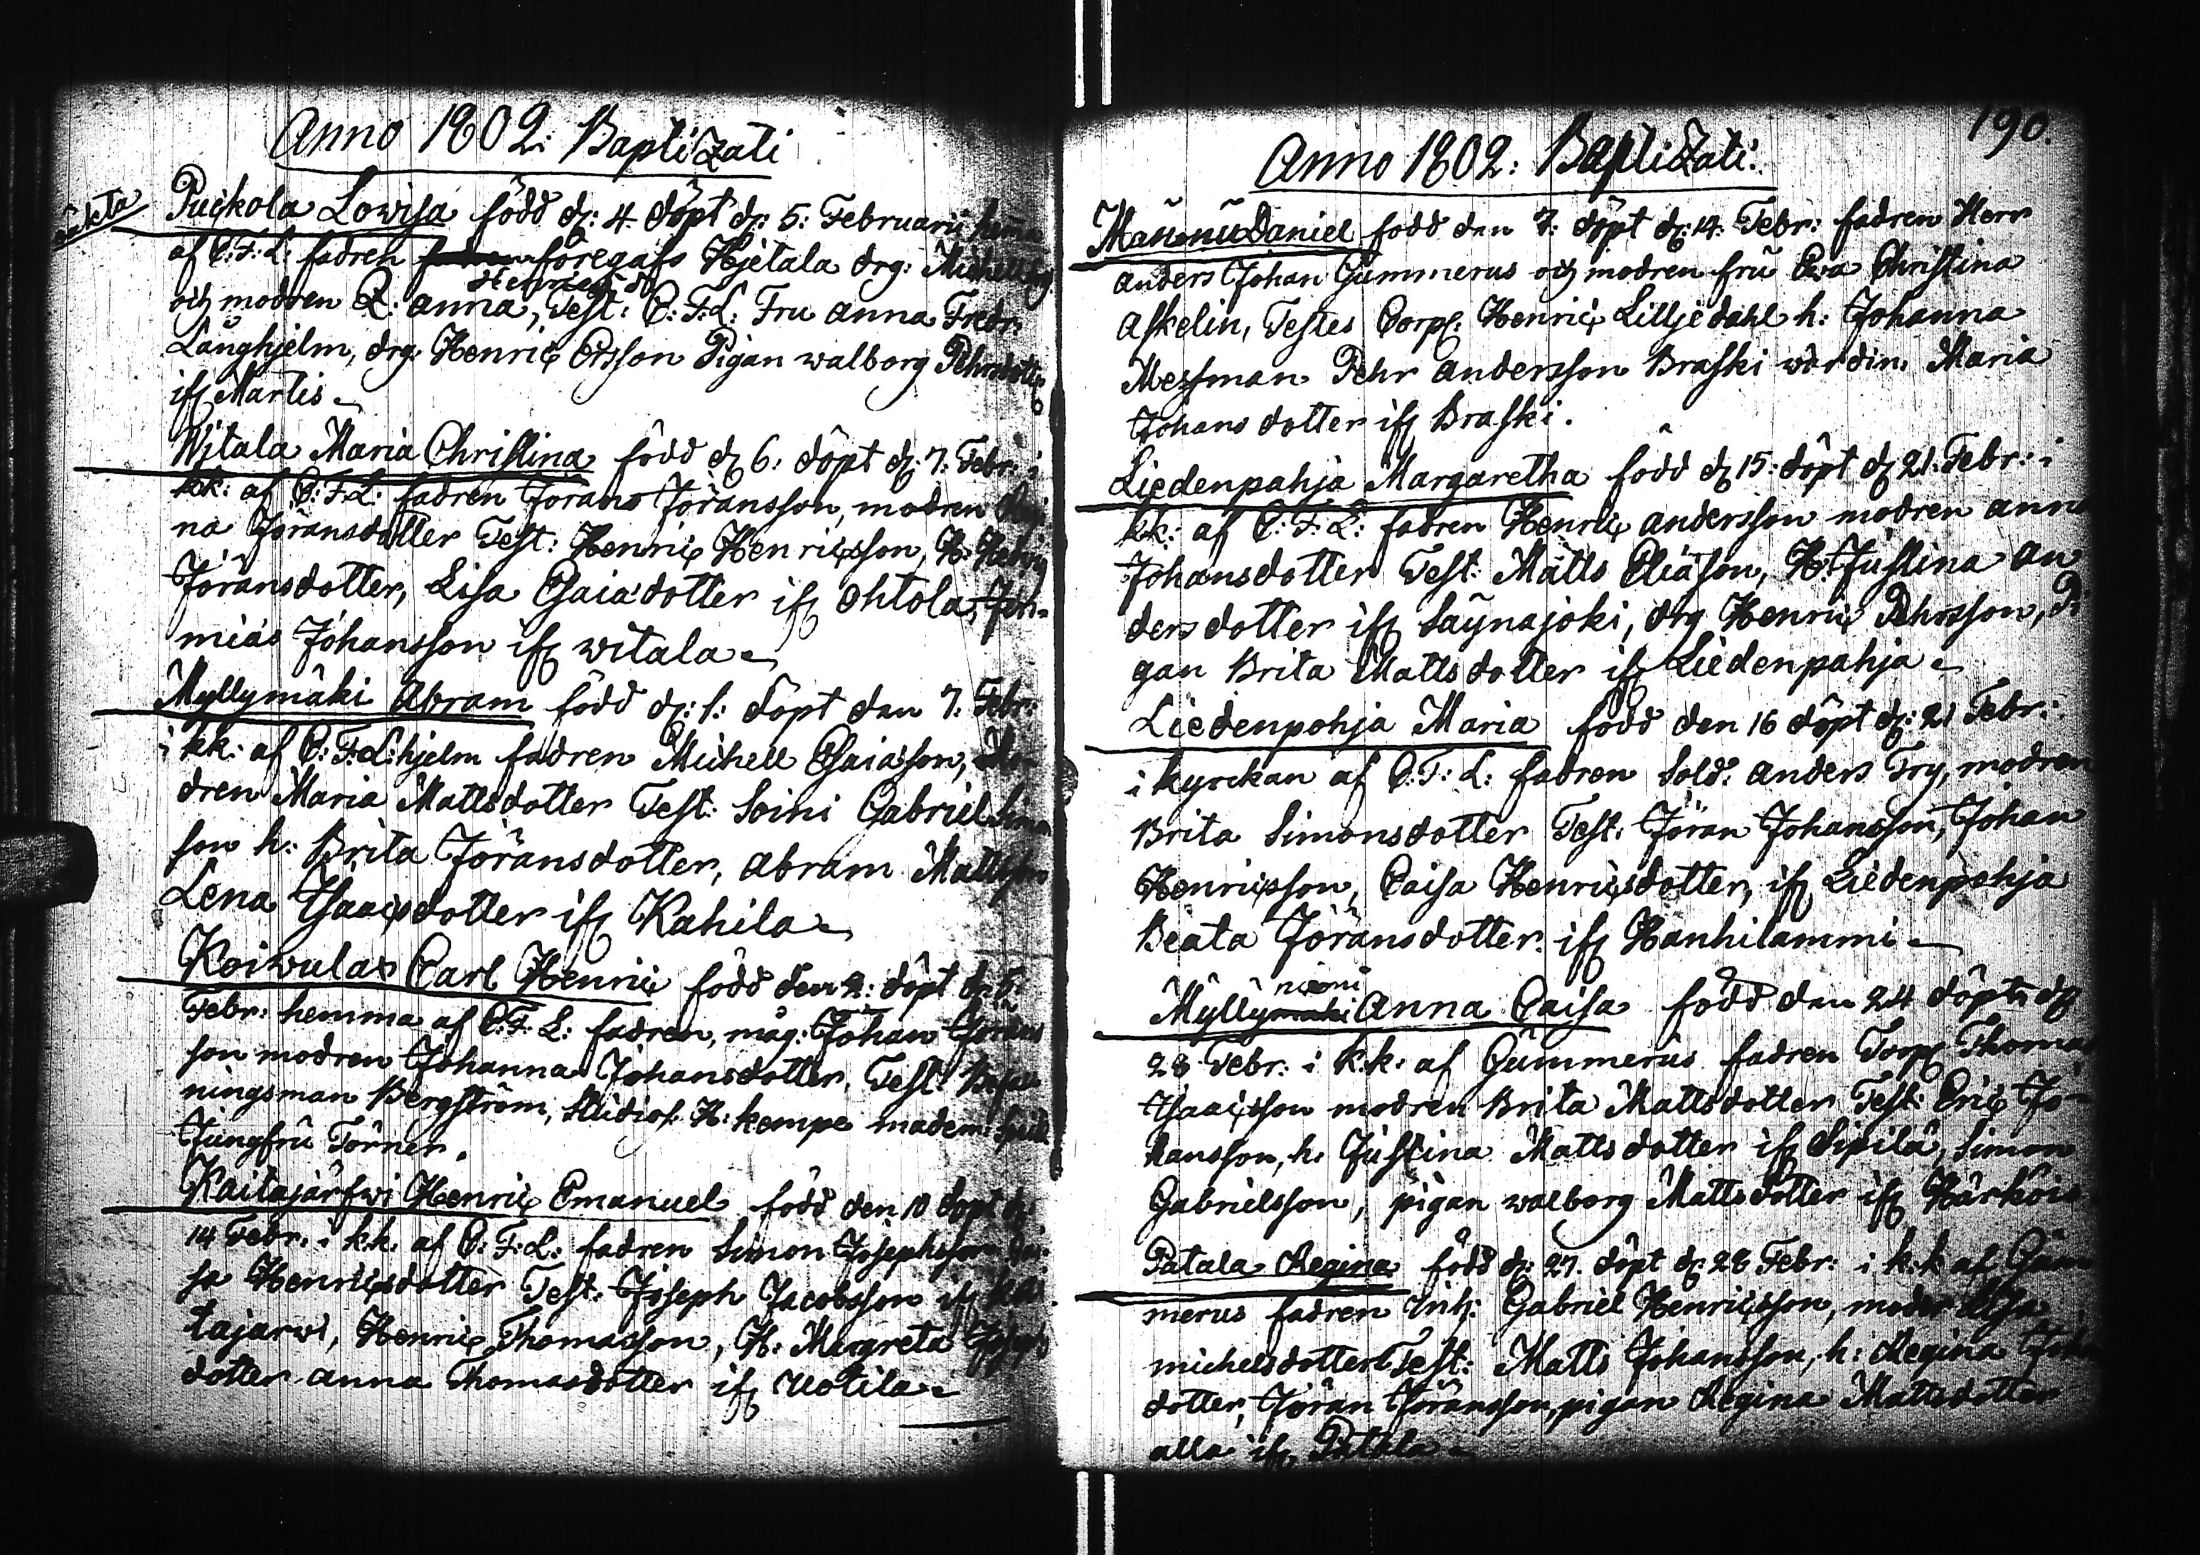 Anno 1802: Baptizati
Puckola Lowisa född d: 4 döpt d: 5: Februarii hema
af C: F: L: fadren föregafs Hjetala drg: Michell
Henricsd
och modren Q: Anna, Test: C: F: L: Fru Anna Fredr:
Långhjelm, drg: Henric Ersson Pigan Walborg Pehrsdotter
ifr Martis
Witala Maria Christina född d 6: döpt d: 7: Febr: i
kk: af C: F: L: fadren Jöran Jöransson, modren
na Jöransdotter Test: Henric Henricsson, H: Hedvig
Jöransdotter, Lisa Esaiadotter ifr Ohtola, Jere-
mias Johansson ifr Witala
Myllymäki Abram född d: 1: döpt den 7: Febr:
i kk: af C: F: L:hjelm fadren Michell Esaiason, Mo-
dren Maria Mattsdotter Test: Soini Gabriel Simon
son h: Brita Jöransdotter, Abram Mattsson
Lena Isaacsdotter ifr Kahila
Koiwulax Carl Henric född den 2: döpt d: 5
Febr: hemma af C: F: L: fadren, måg: Johan Jörans
son modren Johanna Johansdotter, Test: Befall
ningsman Bergström, Studios: H: kempe madem:
Jungfru Törner.
Kaitajärfwi Henric Emanuel född den 10 döpt d:
14 Febr: i k.k. af C: F: L: fadren Simon Josephsson Cai-
sa Henricsdotter Test: Joseph Jacobsson ifr Kai
tajarwi, Henric Thomasson, H: Margreta Josephs
dotter Anna Thomasdotter ifr Uotila
190.
Anno 1802: Baptizati:
Daniel född den 7: döpt d: 14: Febr: fadren Herr
Anders Johan Gummerus och modren fru Ewa Christina
Askelin, Testes Corpr: Henric Lilljedahl h: Johanna
Messman Pehr Andersson Braski wärdin: Maria
Johansdotter ifr Braski.
Liedenpahja Margaretha född d 15: döpt d 21: Febr: i
kk: af C: F: L: fadren Henric Andersson modren Anna
Johansdotter Test: Matts Eliason, H: Justina An
dersdotter ifr Säynajoki, drg Henric Pehrsson, Pi
gan Brita Mattsdotter ifr Liedenpahja
Liedenpohja Maria född den 16 döpt d: 21 Febr:
i kyrckan af C: F: L: fadren Sold: Anders Try, modren
Brita Simonsdotter Test: Jöran Johansson, Johan
Henricsson, Caisa Henricsdotter, ifr Liedenpohja
Beata Jöransdotter ifr Hanhilammi
niemi
Myllymäki Anna Caisa född den 24 döpt d
28 Febr: i k.k. af Gummerus fadren Torpr Thomas
Isaacsson modren Brita Mattsdotter Test: Eric Jo-
hansson, h. Justina Mattsdotter ifr Sipilä, Simon
Gabrielsson, pigan Walborg Mattsdotter ifr
Patala Regina född d: 27. döpt d: 28 Febr: i k.k af Gum
merus fadren Inh: Gabriel Henricsson, moder Lisa
michelsdotter Test: Matts Johansson, h: Regina Johans
dotter, Jöran Jöransson, pigan Regina Mattsdotter
alla ifr Patala